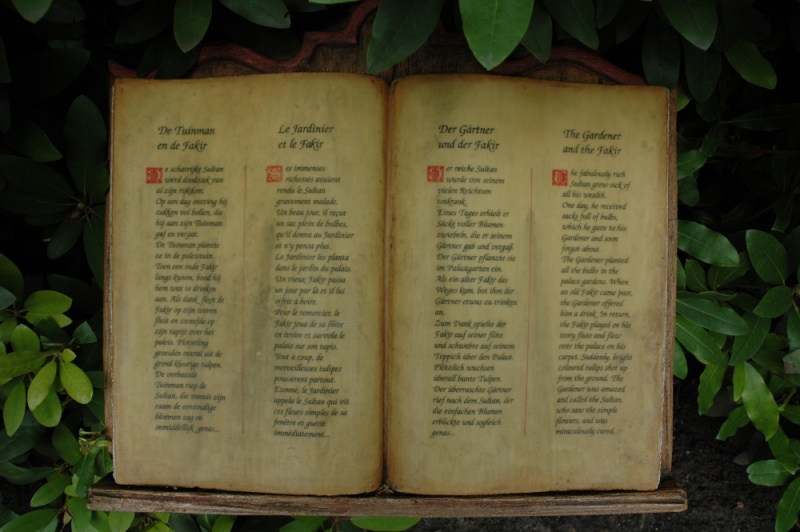 De Tuinman
en de Fakir
De schatrijke Sultan
werd doodziek van
al zijn rijkdom.
Op een dag ontving hij
zakken vol bollen, die
hij aan zijn Tuinman
gaf en vergat.
De Tuinman plantte
ze in de paleistuin.
Toen een oude Fakir
langs kwam, bood hij
hem wat te drinken
aan. Als dank, floot de
Fakir op zijn ivoren
fluit en zweefde op
zijn tapijt over het
paleis. Plotseling
groeiden overal uit de
grond kleurige tulpen.
De verbaasde
Tuinman riep de
Sultan, die vanuit zijn
raam de eenvoudige
bloemen zag en
onmiddellijk genas...
Le Jardinier
et le Fakir
Ses immenses
richesses avaient
rendu le Sultan
gravement malade.
Un beau jour, il reçut
un sac plein de bulbes,
qu'il donna au Jardinier
et n'y pensa plus.
Le Jardinier les planta
dans le jardin du palais.
Un vieux Fakir passa
un jour par là et il lui
offrit à boire.
Pour le remercier, le
Fakir joua de sa flûte
en ivoire et survola le
palais sur son tapis.
Tout à coup, de
merveilleuses tulipes
poussèrent partout.
Etonné, le Jardinier
appela le Sultan qui vit
ces fleurs simples de sa
fenêtre et guérit
immédiatement...
Der Gärtner
und der Fakir
Der reiche Sultan
wurde von seinem
vielen Reichtum
todkrank.
Eines Tages erhielt er
Säcke voller Blumen-
zwiebeln, die er seinem
Gärtner gab und vergaß.
Der Gärtner pflanzte sie
im Palastgarten ein.
Als ein alter Fakir des
Weges kam, bot ihm der
Gärtner etwas zu trinken
an.
Zum Dank spielte der
Fakir auf seiner Flöte
und schwebte auf seinem
Teppich über den Palast.
Plötzlich wuchsen
überall bunte Tulpen.
Der überraschte Gärtner
rief nach dem Sultan, der
die einfachen Blumen
erblickte und sogleich
genas...
The Gardener
and the Fakir
The fabulously rich
Sultan grew sick of
all his wealth.
One day, he received
sacks full of bulbs,
which he gave to his
Gardener and soon
forgot about.
The Gardener planted
all the bulbs in the
palace gardens. When
an old Fakir came past,
the Gardener offered
him a drink. In return,
the Fakir played on his
ivory flute and flew
over the palace on his
carpet. Suddenly, bright
coloured tulips shot up
from the ground. The
Gardener was amazed
and called the Sultan,
who saw the simple
flowers, and was
miraculously cured...